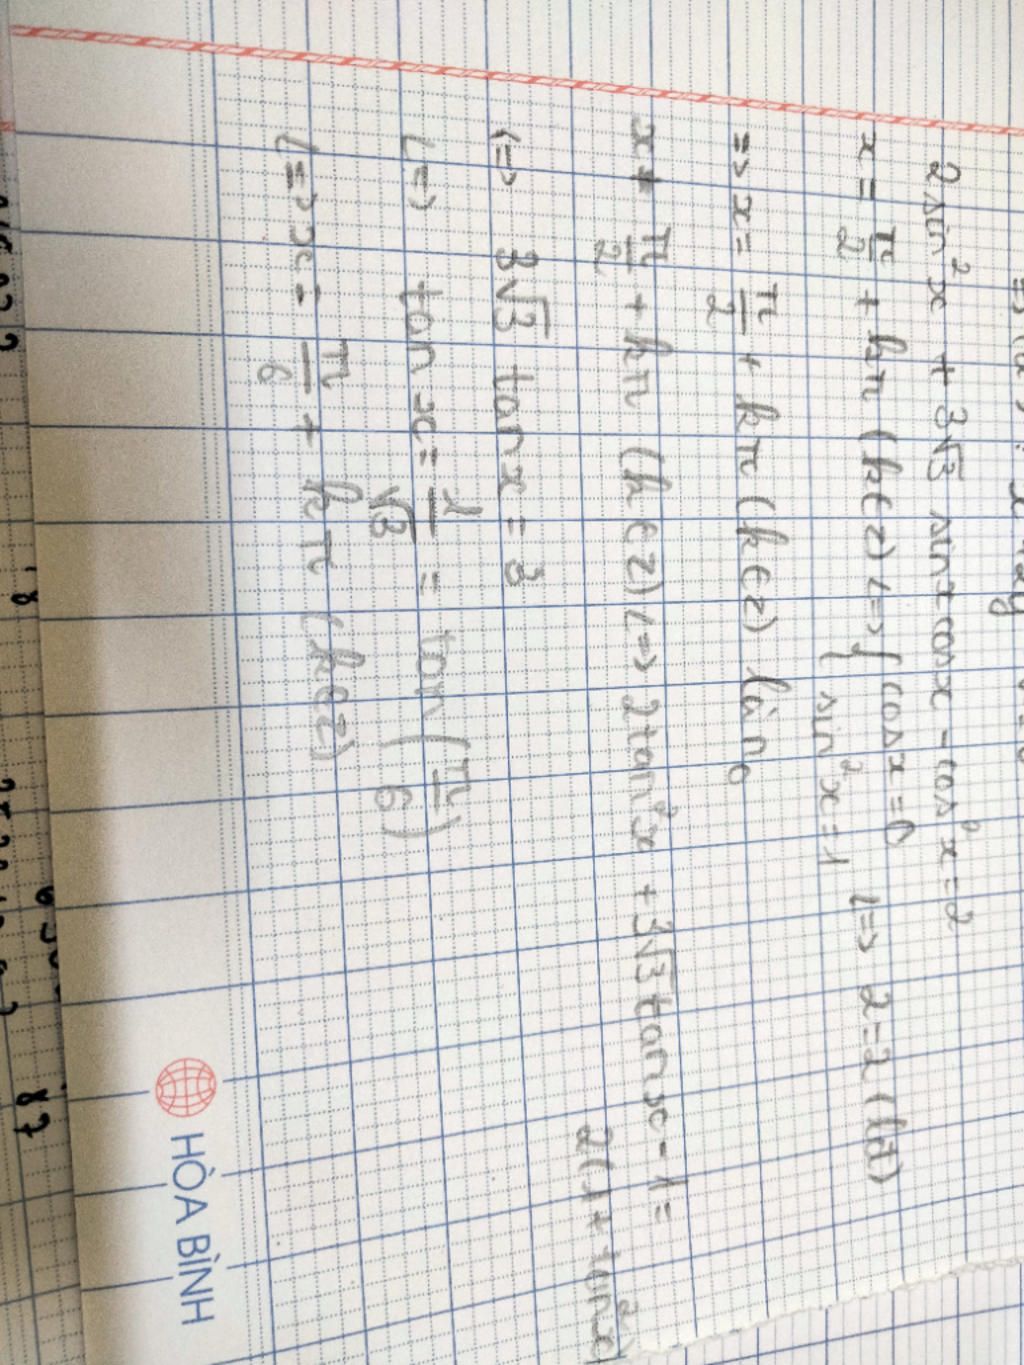 2sin²x + 3√3 sinxcosx - cos²x = 2
x = π/2 + kπ (k∈z) <=> { cosx = 0
sin²x = 1 <=> 2 = 2 (lđ)
=> x = π/2 + kπ (k∈z) là n₀
x ≠ π/2 + kπ (k∈z) <=> 2tan²x + 3√3 tanx - 1 =
2(1 + tan²x)
<=> 3√3 tanx = 3
<=> tan x = 1/√3 = tan(π/6)
<=> x = π/6 + kπ (k∈z)
HÒA BÌNH